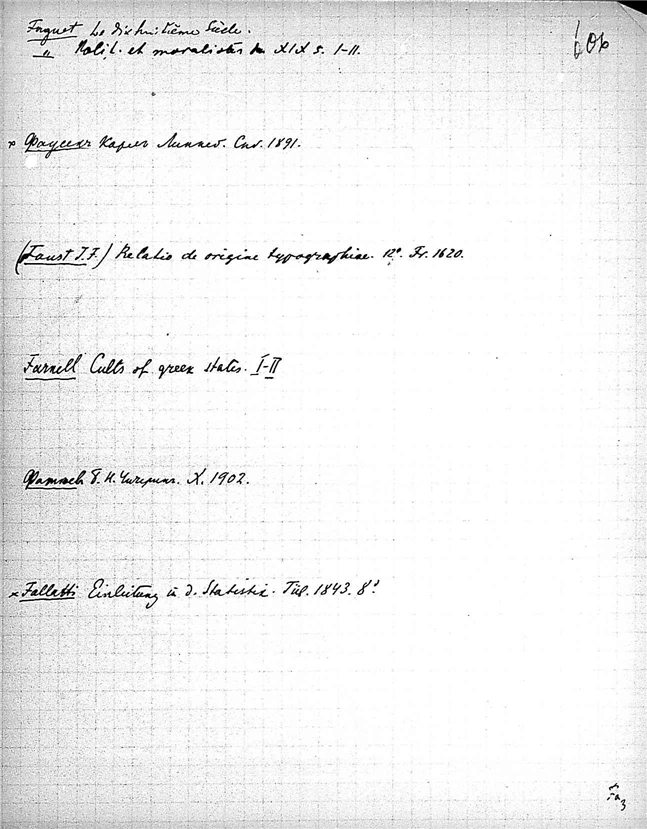 Faguet Le dixhuitième Siècle.
" Polit. et moralistes XIX s. I-II.
606
× Фаусекъ Карлъ Линней. Спб. 1891.
(Faust J.F.) Relatio de origine typographiae. 12°. Fr. 1620.
Farnell Cults of green states. I-II
Б. Н. Чичеринъ. X. 1902.
× Fallatti Einleitung in d. Statistik. Tüb. 1843. 8°.
Fa 3